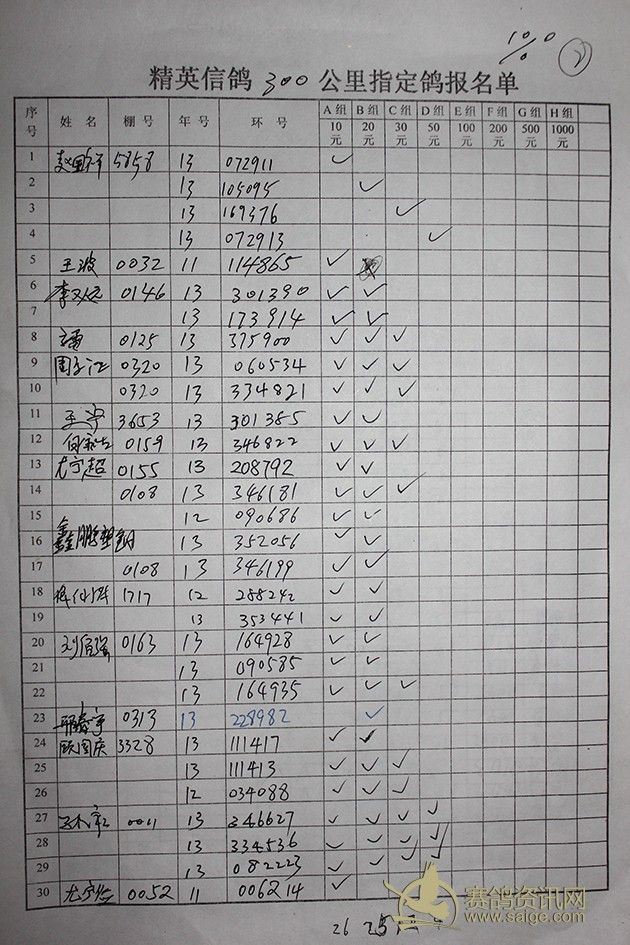 10%
2
精英信鸽 300 公里指定鸽报名单
序号 姓 名 棚 号 年 号 环 号 A组 10元 B组 20元 C组 30元 D组 50元 E组 100元 F组 200元 G组 500元 H组 1000元
1 赵国祥 5858 13 072911 ✓
2 13 105095 ✓
3 13 169376 ✓
4 13 072913 ✓
5 王波 0032 11 114865 ✓
6 0146 13 301390 ✓ ✓
7 13 173914 ✓ ✓
8 0125 13 375900 ✓ ✓ ✓
9 0320 13 060534 ✓ ✓ ✓
10 0320 13 334821 ✓ ✓ ✓
11 王宁 3653 13 301385 ✓ ✓
12 0159 13 346822 ✓ ✓ ✓
13 尤宁超 0155 13 208792 ✓ ✓
14 0108 13 346181 ✓ ✓ ✓
15 12 090686 ✓ ✓
16 鑫鹏塑钢 13 352056 ✓ ✓
17 0108 13 346199 ✓ ✓
18 1717 12 288242 ✓ ✓
19 13 353441 ✓ ✓
20 刘信强 0163 13 164928 ✓ ✓
21 13 090585 ✓ ✓
22 13 164935 ✓ ✓ ✓
23 0313 13 228982 ✓
24 欧国庆 3328 13 111417 ✓ ✓
25 13 111413 ✓ ✓ ✓
26 12 034088 ✓ ✓ ✓
27 0011 13 346627 ✓ ✓ ✓ ✓
28 13 334536 ✓ ✓ ✓ ✓
29 13 082223 ✓ ✓ ✓ ✓
30 0052 11 006214 ✓
26 25
赛鸽资讯网
www.saige.com